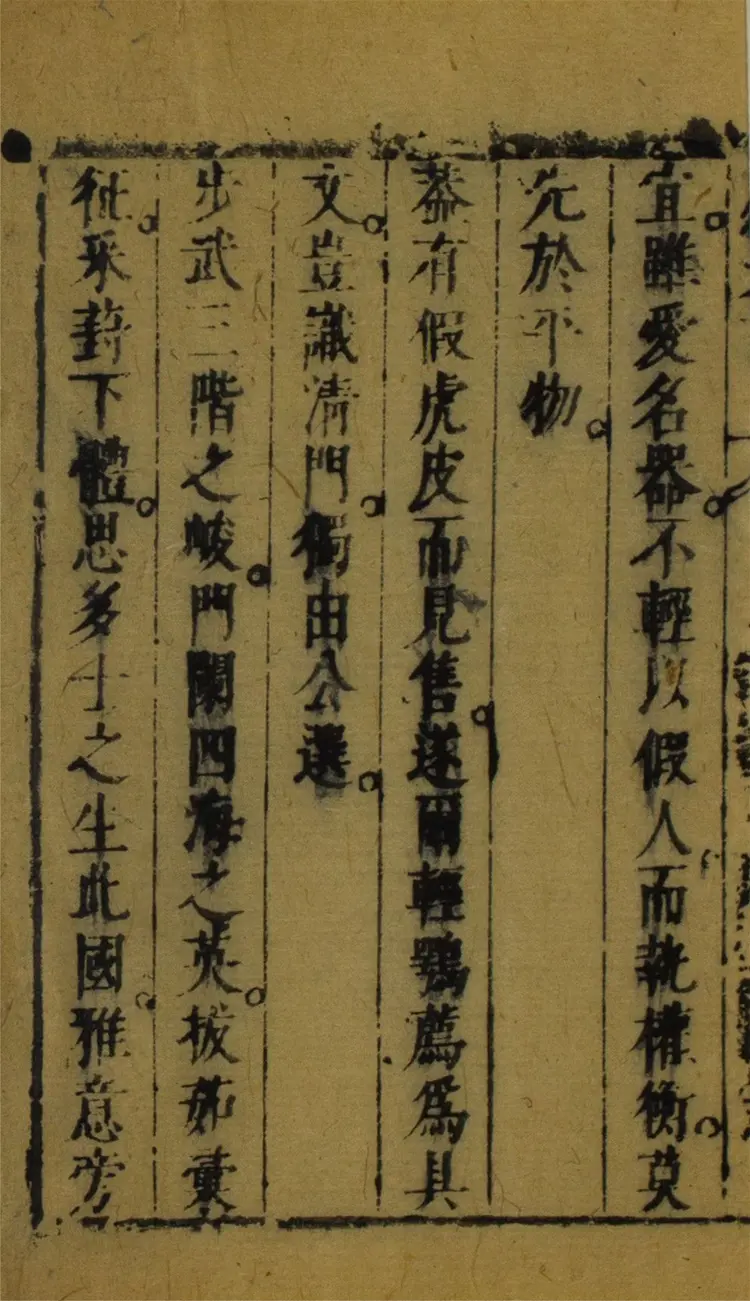 宜雖愛名器不輕以假人而執權衡莫
先於平物
蓋有假虎皮而見售遂爾輕鶚薦為具
文豈識淸門獨由公選
步武三階之峻門闌四海之英拔茹彙
征采葑下體思多士之生此國雅意旁